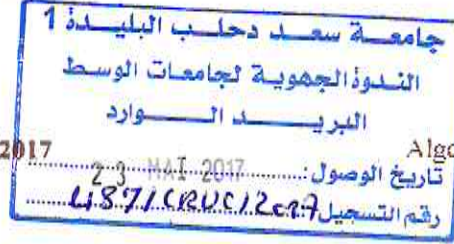 جامعة سعد دحلب البليدة 1
الندوة الجهوية لجامعات الوسط
البريد الوارد
2017
Algo
تاريخ الوصول: 23 MAI 2017
رقم التسجيل 487/CRUC/2017